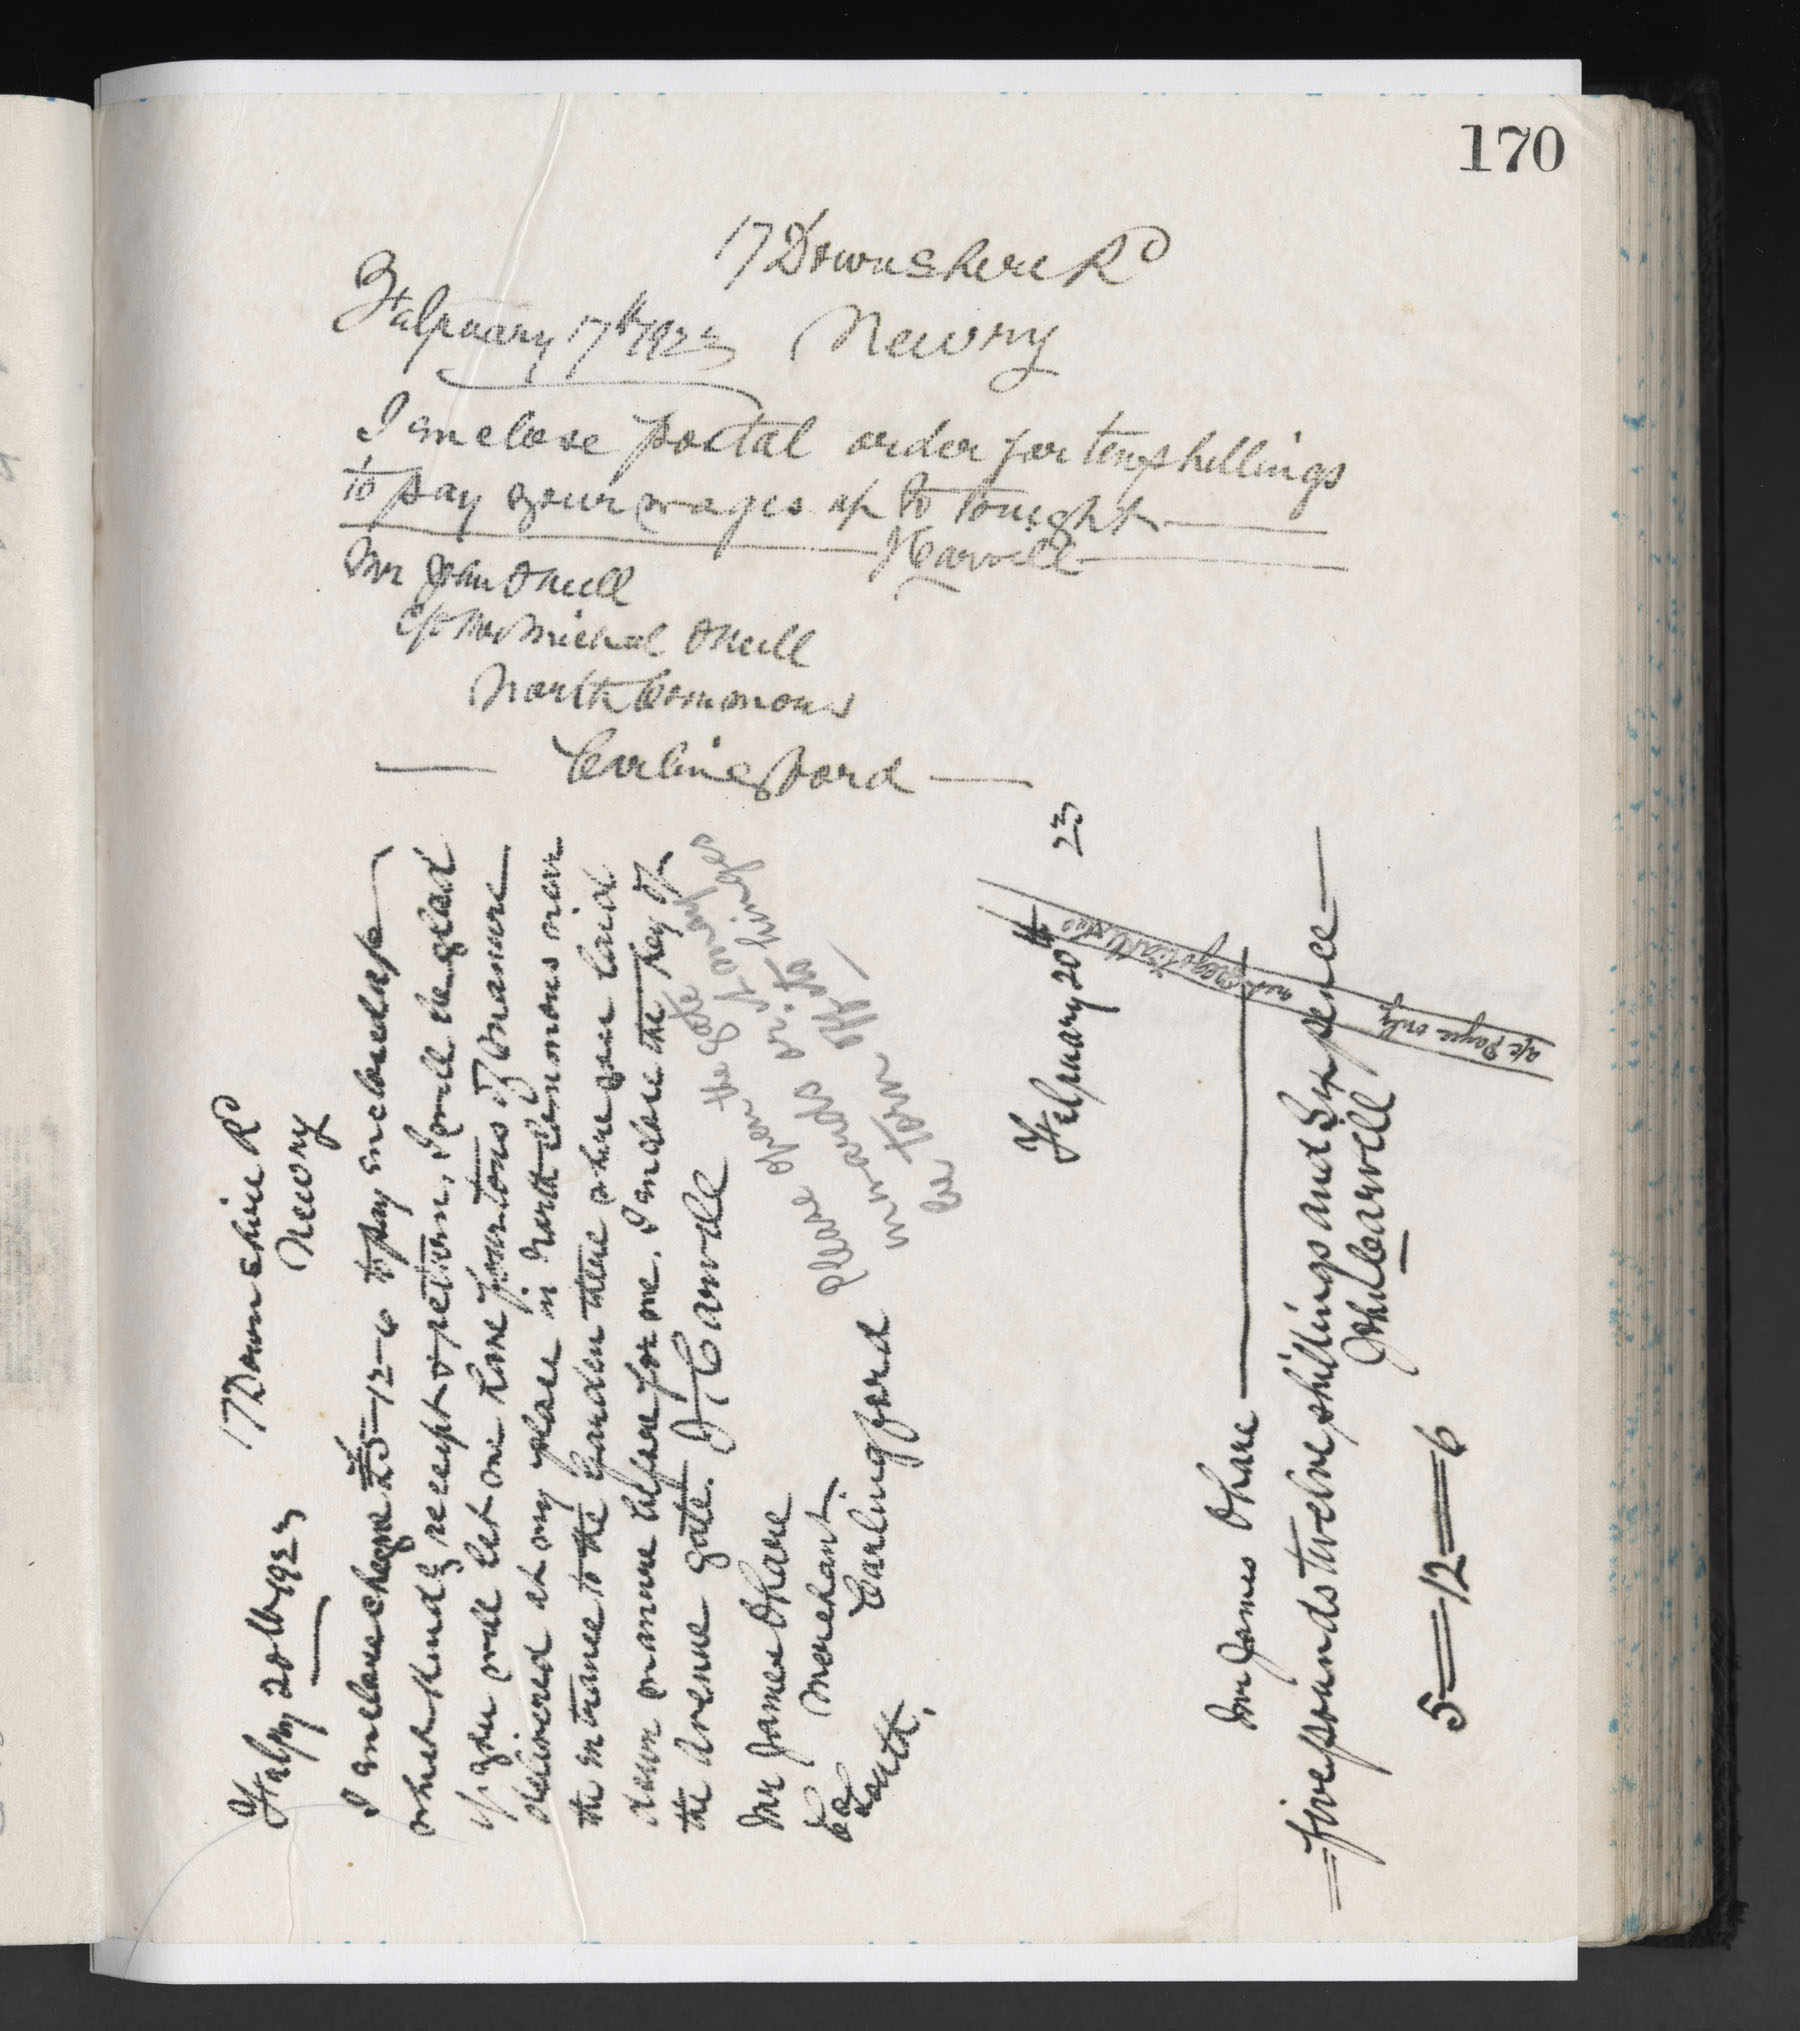 170
17 Downshire Rd
February 17th 1923 Newry
I enclose postal order for ten shillings
to pay your wages up to tonight
J Carvill
Mr John O Neill
c/o Mr Michael O Neill
North Commons
Carlingford
17 Downshire Rd
Feby 20th 1923 Newry
I enclose cheque £5-12-6 to pay enclosed a/c
which kindly receipt & return. I will be glad
if you will let me have four tons of manure
delivered at my place in North Commons near
the entrance to the Garden there where you laid
down manure before for me. I enclose the key of
the Avenue gate. J Carvill
please open the gate
inwards or its hinges
be torn off
Mr James O Hare
Merchant
Carlingford
Co Louth.
February 20th 23
not negotiable
a/c Payee only
Mr James O hare
five pounds twelve shillings and six pence
John Carvill
5-12-6